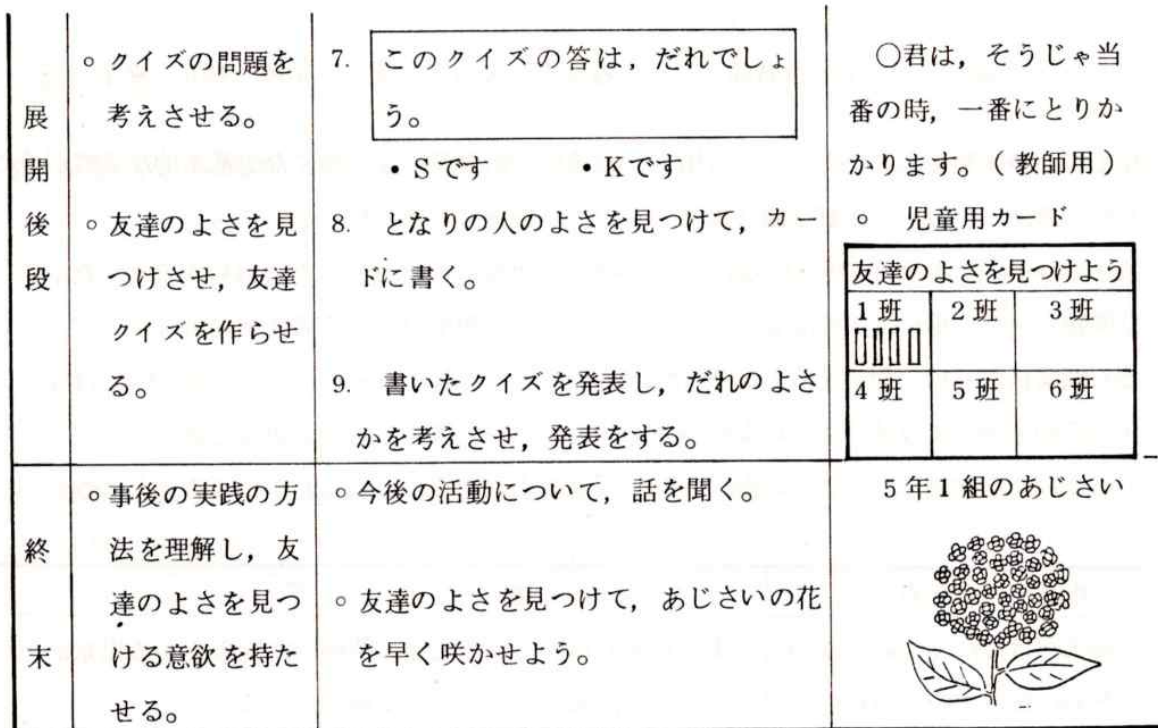 展
開
後
段
○ クイズの問題を
考えさせる。
○ 友達のよさを見
つけさせ，友達
クイズを作らせ
る。
7. このクイズの答は，だれでしょ
う。
・Sです ・Kです
8. となりの人のよさを見つけて，カー
ドに書く。
9. 書いたクイズを発表し，だれのよさ
かを考えさせ，発表をする。
○君は，そうじゃ当
番の時，一番にとりか
かります。（教師用）
○ 児童用カード
友達のよさを見つけよう
1班 2班 3班
4班 5班 6班
終
末
○ 事後の実践の方
法を理解し，友
達のよさを見つ
ける意欲を持た
せる。
○ 今後の活動について，話を聞く。
○ 友達のよさを見つけて，あじさいの花
を早く咲かせよう。
5年1組のあじさい